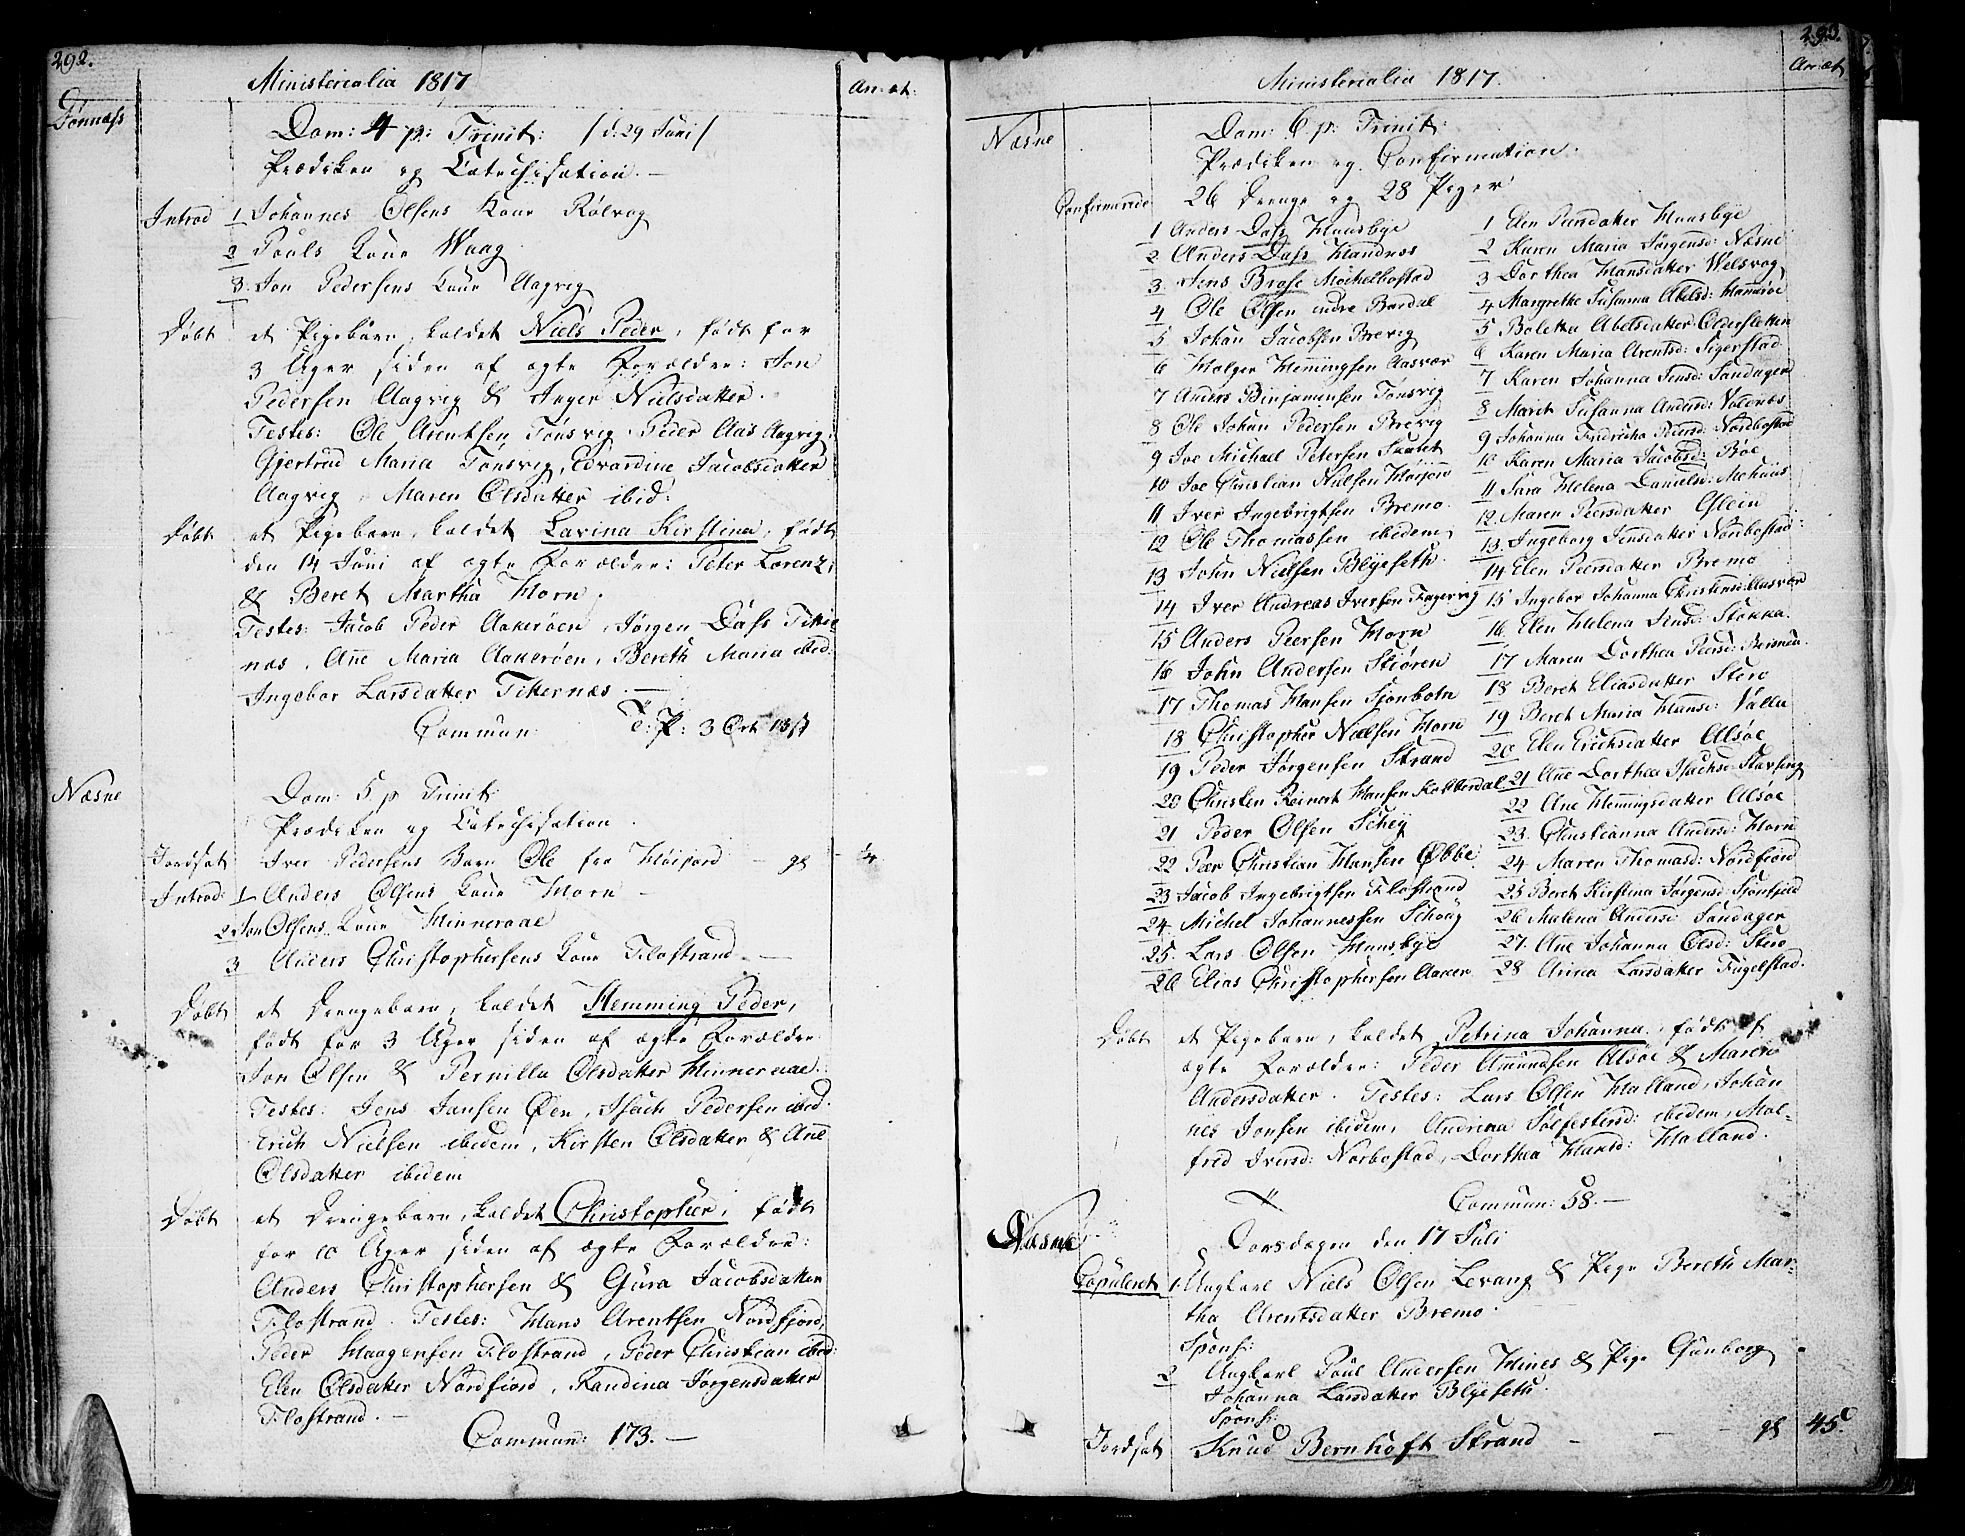 292.
Ministerialia 1817
An: æt:
Dønnæss
Dom: 4 p: Trinit: / d. 29 Juni /
Prædiken og Catechisation. —
Introd 1 Johannes Olsens Kone Rølvog
2 Pouls Kone Waag
3. Jon Pedersens Kone Aagvig
Døbt et Pigebarn, kaldet Niels Peder, født for
3 Uger siden af ægte Forældre: Jon
Pedersen Aagvig & Inger Nielsdatter.
Testes: Ole Arentsen Tønsvig, Peder Aas Aagvig,
Gjertrud Maria Tønsvig, Edvardine Jacobsdatter
Aagvig, Maren Olsdatter ibid:
Døbt et Pigebarn, kaldet Lavina Kirstina, født
den 14 Juni af ægte Forældre: Peter Lorentz
& Beret Martha Horn.
Testes: Jacob Peder Aakerøen, Jørgen Dass Tikie
næs, Ane Maria Aakerøen, Bereth Maria ibid.
Ingebor Larsdatter Tikernæs. —
Commun: T: P: 3 Ort 13 β
Næsne
Dom: 5 p Trinit:
Prædiken og Catechisation.
Jordfæt Iver Pedersens Barn Ole fra Høijord — gl — 1/4
Introd: 1 Anders Olsens Kone Horn —
2 Jon Olsens Kone Hinneraae
3 Anders Christophersens Kone Flostrand. —
Døbt et Drengebarn, kaldet Hemming Peder,
født for 3 Uger siden af ægte Forældre
Jon Olsen & Pernilla Olsdatter Hinneraae.
Testes: Jens Jansen Øen, Isach Pedersen ibid.
Erich Nielsen ibidem, Kirsten Olsdatter & Ane
Olsdatter ibidem
Døbt et Drengebarn, kaldet Christopher, født
for 10 Uger siden af ægte Forældre:
Anders Christophersen & Gura Jacobsdatter
Flostrand. Testes: Hans Arentsen Nordfjord,
Peder Haagensen Flostrand, Peder Christian ibid:
Elen Olsdatter Nordfiord, Randina Jørgensdatter
Flostrand. —
Commun: 173. —
293.
Ministerialia 1817.
An: æt
Næsne
Dom: 6 p: Trinit:
Prædiken og Confirmation.
26 Drenge og 28 Piger
Confirmerede
1 Anders Dass Huusbye
2 Anders Dass Handnæs
3. Jens Brose Mechelbostad
4 Ole Olsen indre Bardal
5 Johan Jacobsen Brevig
6 Holger Hemingsen Aasvær
7 Anders Binjaminsen Tønsvig
8 Ole Johan Pedersen Brevig
9 Joe Michael Petersen
10 Joe Christian Nielsen Høijord
11 Iver Ingebrigtsen Bremo
12 Ole Thomassen ibidem
13 John Nielsen Blyeseth
14 Iver Andreas Iversen Fagervig
15 Anders Peersen Horn
16 John Andersen Stiøren
17 Thomas Hansen Sjonbotn
18 Christopher Nielsen Horn
19 Peder Jørgensen Strand
20 Christen Reinert Hansen Kobberdal
21 Peder Olsen Schey
22 Peer Christian Hansen Ybbe
23 Jacob Ingebrigtsen Flostrand
24. Michel Johannessen
25. Lars Olsen Huusbye
26 Elias Christophersen Aaker
1 Elen Peersdatter Huusbye
2 Karen Maria Jørgensd: Næsne
3 Dorthea Hansdatter Welsvog
4 Margrethe Susanna Abelsd: Hammerøe
5 Boletta Abelsdatter Oldersletten
6 Karen Maria Arentsd: Sigerstad
7 Karen Johanna Jensd: Sandager
8 Marit Susanna Andersd:
9 Johanna Fredricha Peersd: Nordbostad
10 Karen Maria Jacobsd: Bøe
11 Sara Helena Danielsd:
12. Maren Peersdatter Glein
13. Ingeborg Jensdatter Norbostad
14 Elen Peersdatter Bremo
15 Ingebor Johanna Christensd: Aasvær
16. Elen Helena Jensd: Stokka.
17 Maren Dorthea Peersd:
18 Beret Eliasdatter Storo
19 Beret Maria Hansd: Valla
20 Elen Erichsdatter Alsøe
21 Ane Dorthea Isachsd:
22 Ane Hemmingsdatter Alsøe
23. Christianna Andersd: Horn
24. Maren Thomasd: Nordfiord
25 Beret Kirstina Jørgensd: Sjonfjeld
26 Malena Andersd: Sandager
27. Ane Johanna Olsd: Storo
28 Anna Larsdatter Fugelstad.
Døbt et Pigebarn, kaldet Petrina Johanna, født af
ægte Forældre: Peder Amundsen Alsøe & Maren
Andersdatter. Testes: Lars Olsen Halland, Johan
nes Jonsen ibidem, Andrina Sølfestersd: ibidem, Mal-
fred Iversd: Norbostad, Dorthea Hansd: Halland.
Commun: 58. —
Næsne
Torsdagen den 17 Juli
Copuleret 1. Ungkarl Niels Olsen Levang & Pige Bereth Mar-
tha Arentsdatter Bremo.
Spons:
2 Ungkarl Poul Andersen Hines & Pige Gunborg
Johanna Larsdatter Blyeseth.
Spons:
Jordfæt Knud Bernhoft Strand — — — gl 45.